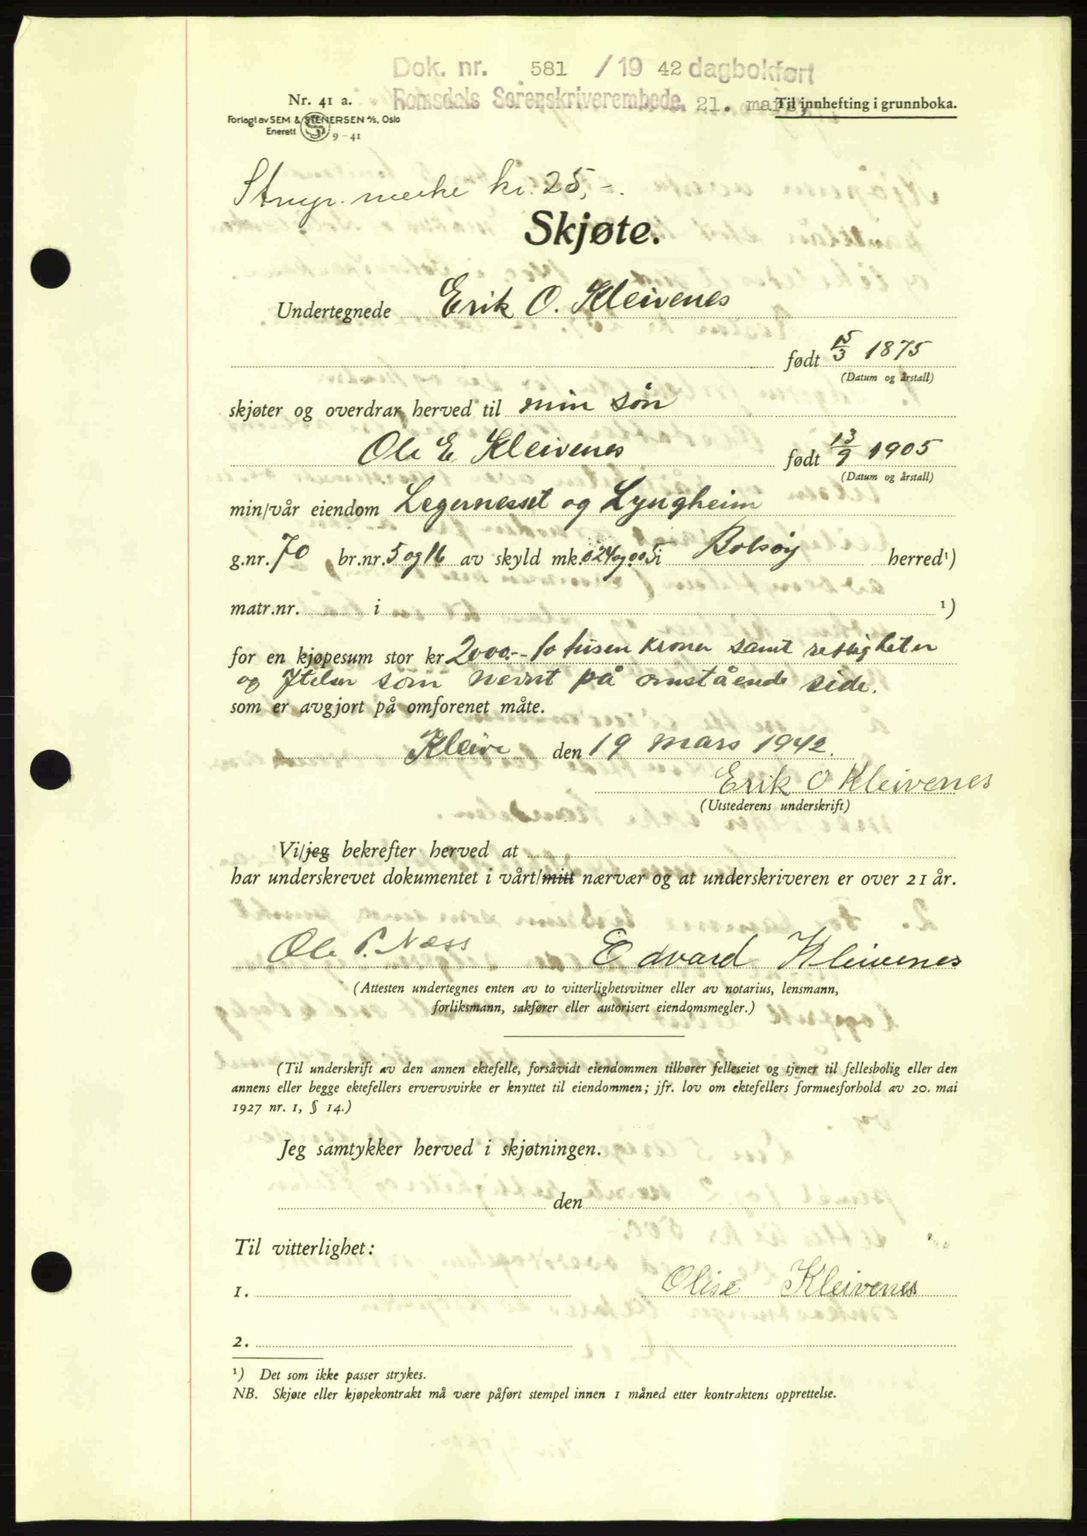 Dok. nr. 581 / 19 42 dagbokført
Nr. 41 a.
Romsdals Sorenskriverembede. 21. mai
Til innhefting i grunnboka.
Forlagt av SEM & STENERSEN A/S, Oslo
Enerett 9 – 41
merke kr. 25,-.
Skjøte.
Undertegnede Erik O. Kleivenes
født 15/3 1875
(Datum og årstall)
skjøter og overdrar herved til min søn
Ole E. Kleivenes født 13/9 1905
(Datum og årstall)
min/vår eiendom Legernesset og Lyngheim
g.nr. 70 br.nr. 5 og 16 av skyld mk. 0 24 og 0 05 i Bolsøy herred¹)
matr.nr. i ¹)
for en kjøpesum stor kr 2000.-- to tusen kroner samt rettigheter
og ytelser som nevnt på omstående side.
som er avgjort på omforenet måte.
Kleive den 19 mars 1942.
Erik O Kleivenes
(Utstederens underskrift)
Vi/jeg bekrefter herved at
har underskrevet dokumentet i vårt/mitt nærvær og at underskriveren er over 21 år.
Ole P. Næss Edvard Kleivenes
(Attesten undertegnes enten av to vitterlighetsvitner eller av notarius, lensmann,
forliksmann, sakfører eller autorisert eiendomsmegler.)
(Til underskrift av den annen ektefelle, forsåvidt eiendommen tilhører felleseiet og tjener til fellesbolig eller den
annens eller begge ektefellers ervervsvirke er knyttet til eiendommen; jfr. lov om ektefellers formuesforhold av 20. mai
1927 nr. 1, § 14.)
Jeg samtykker herved i skjøtningen.
den
Til vitterlighet:
1. Olise Kleivenes
2.
¹) Det som ikke passer strykes.
NB. Skjøte eller kjøpekontrakt må være påført stempel innen 1 måned etter kontraktens opprettelse.